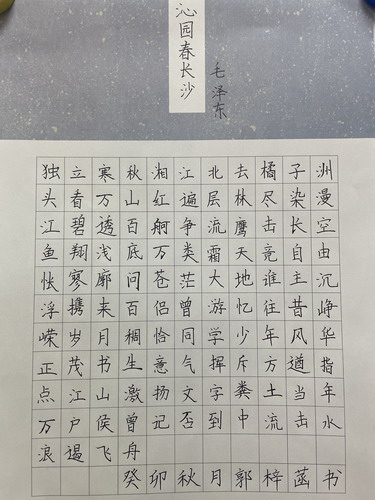 沁园春长沙
毛泽东
独立寒秋湘江北去橘子洲
头看万山红遍层林尽染漫
江碧透百舸争流鹰击长空
鱼翔浅底万类霜天竞自由
怅寥廓问苍茫大地谁主沉
浮携来百侣曾游忆往昔峥
嵘岁月稠恰同学少年风华
正茂书生意气挥斥方遒指
点江山激扬文字粪土当年
万户侯曾记否到中流击水
浪遏飞舟
癸卯秋月郭梓菡书